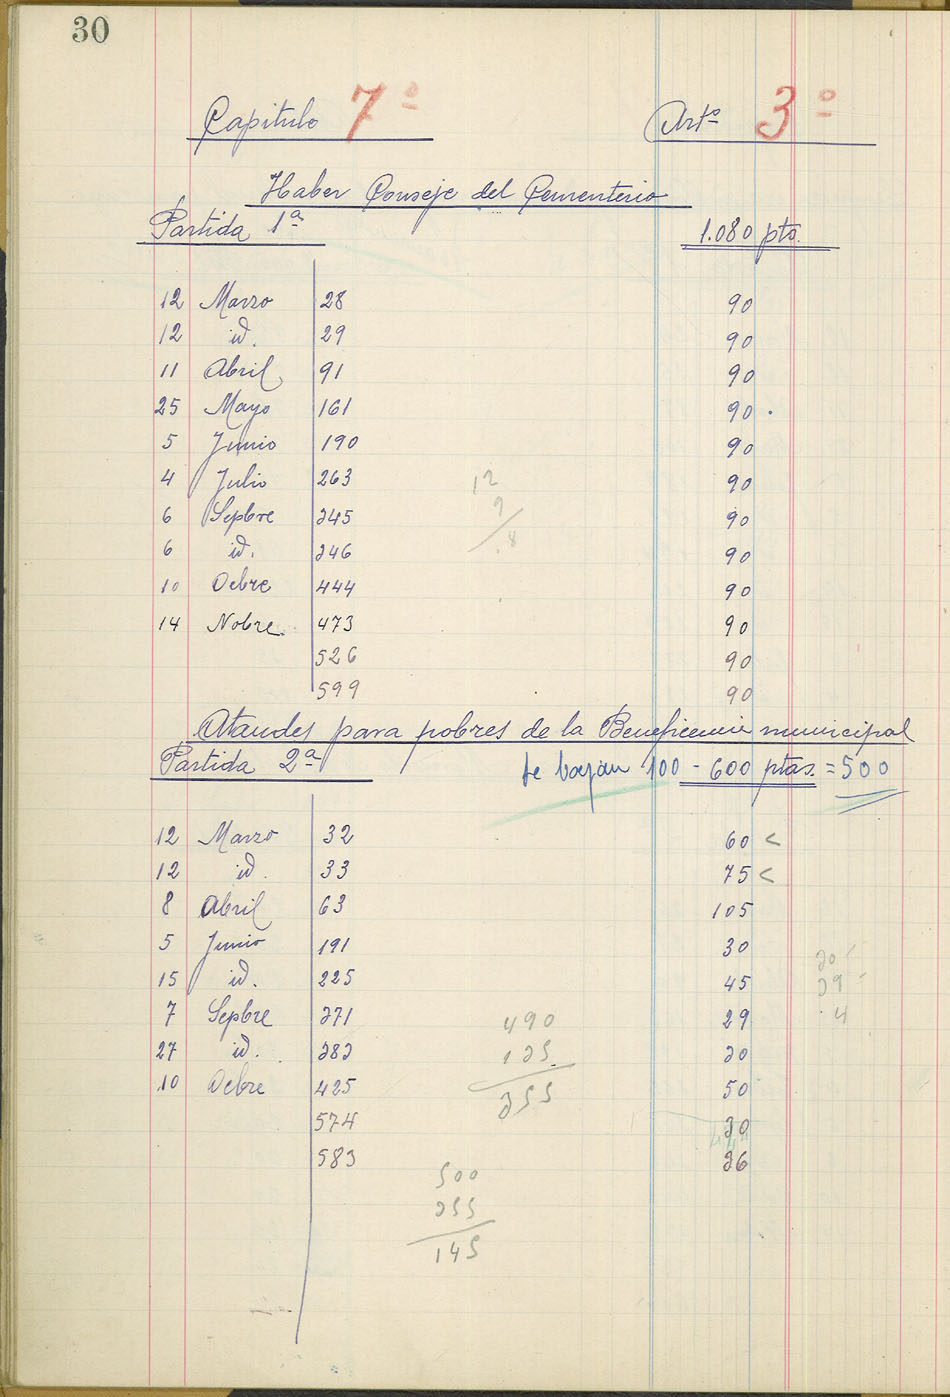 30
Capitulo 7º Artº 3º
Haber Conseje del Cementerio
Partida 1ª 1.080 pts.
12 Marzo 28 90
12 id. 29 90
11 Abril 91 90
25 Mayo 161 90
5 Junio 190 90
4 Julio 263 90
12
9
6 Sepbre 345 90
8
6 id. 346 90
10 Ocbre 444 90
14 Nobre. 473 90
526 90
599 90
Ataudes para pobres de la Beneficencia municipal
Partida 2ª Se bajan 100 - 600 ptas. = 500
12 Marzo 32 60 <
12 id. 33 75 <
8 Abril 63 105
5 Junio 191 30
30
15 id. 225 45
39
7 Sepbre 371 29
4
490
27 id. 383 30
135
10 Ocbre 425 50
355
574 30
583 36
500
355
145